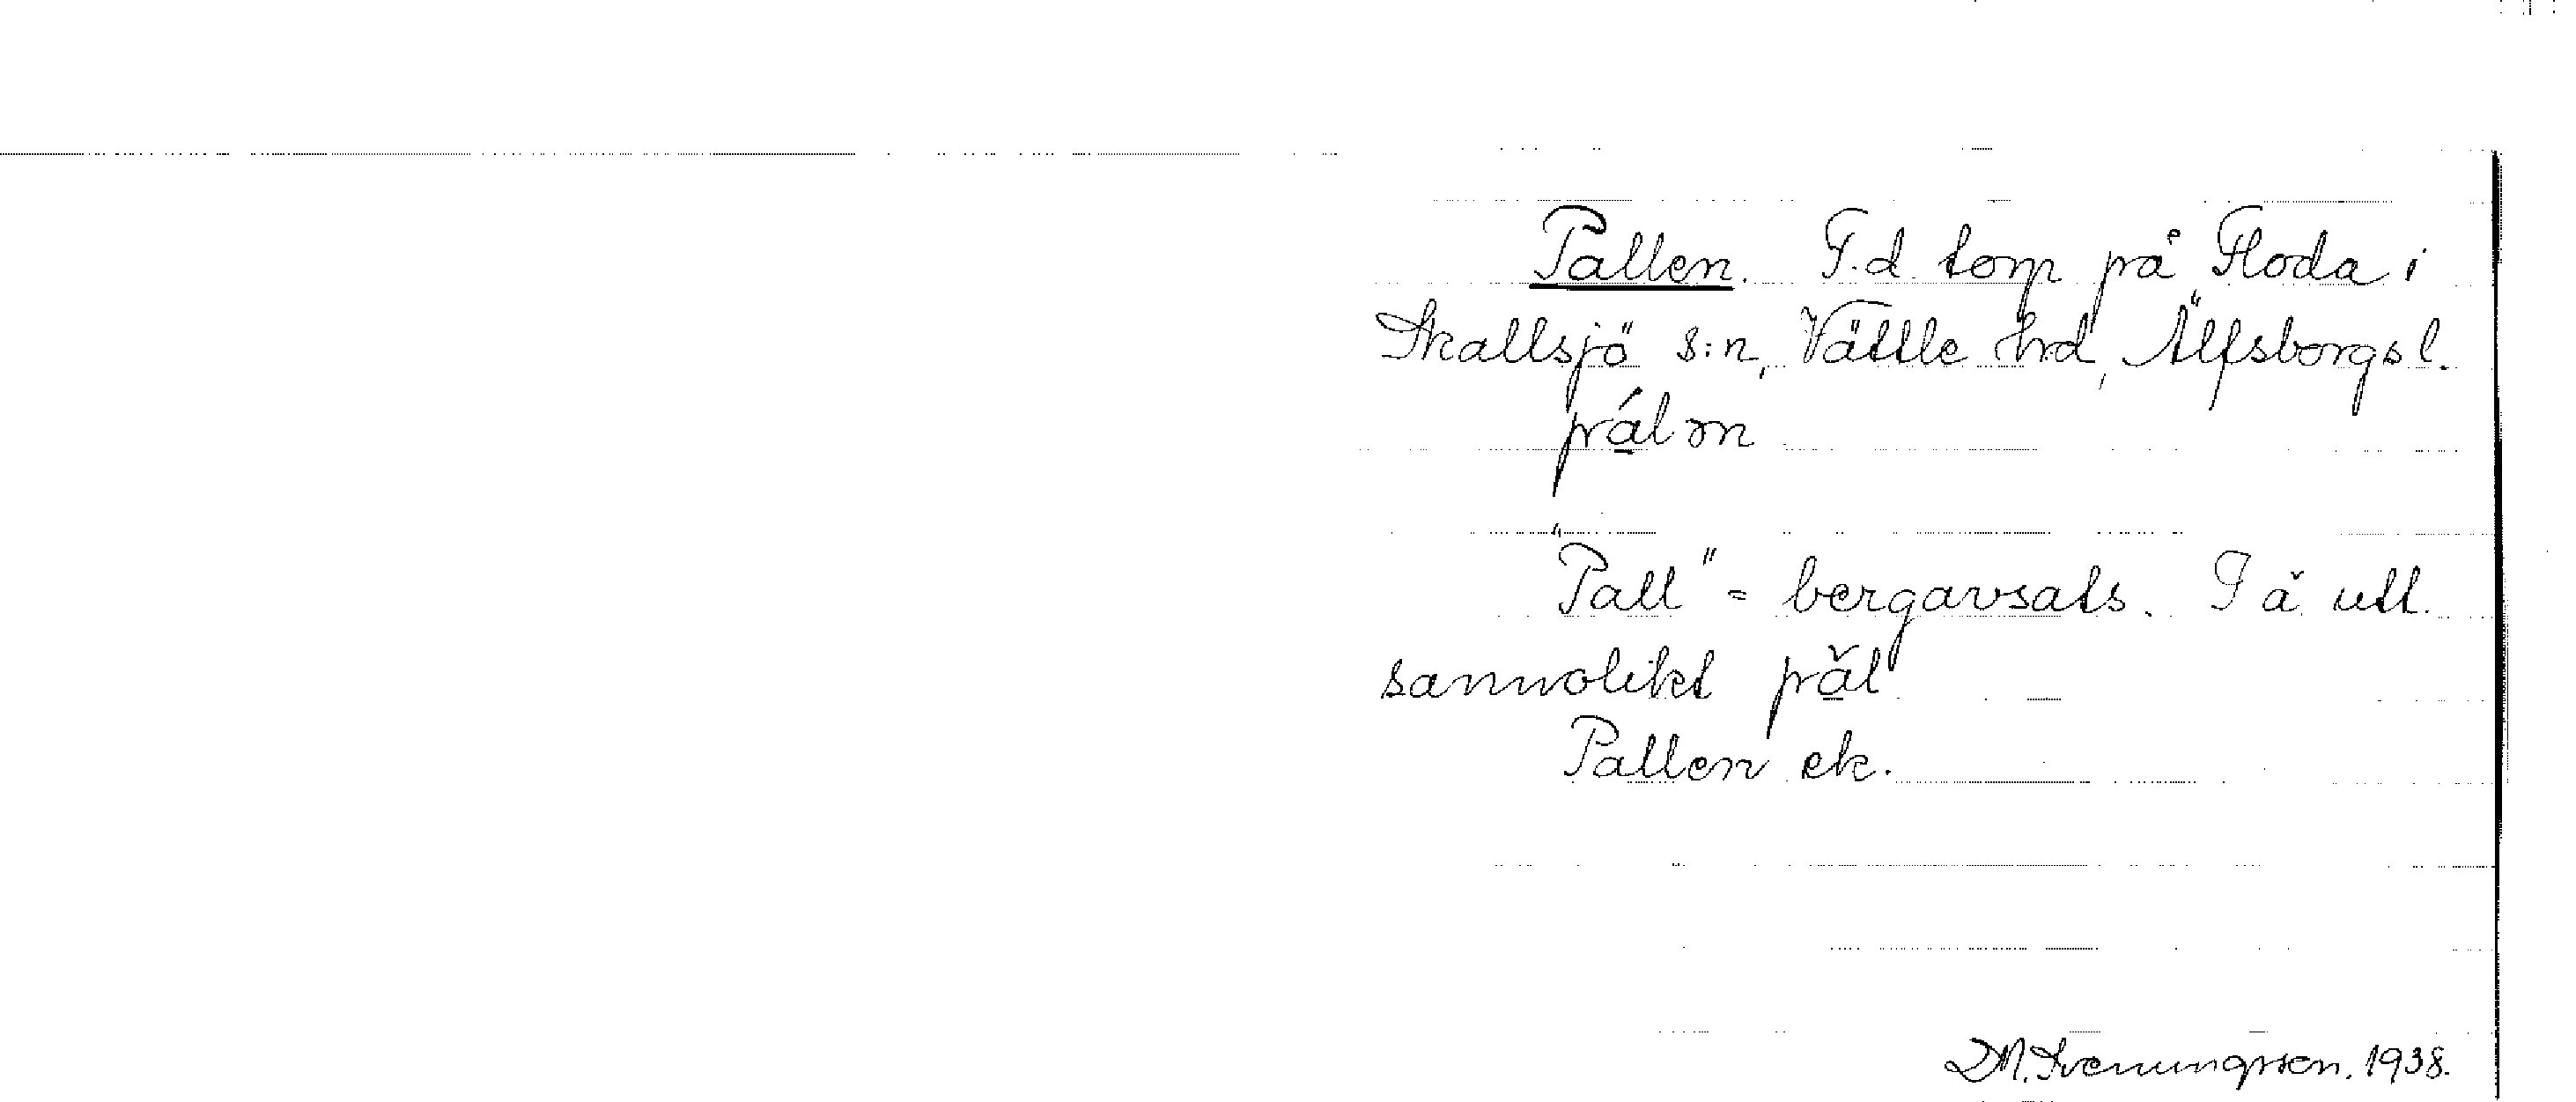 Pallen. F.d. torp på Floda i
Skallsjö s:n, Vättle hrd, Älfsborgs l.
pálɘn
"Pall" = bergavsats. I ä. utt.
sannolikt pǎl
Pallen ek.
D.M. Svenungsson. 1938.